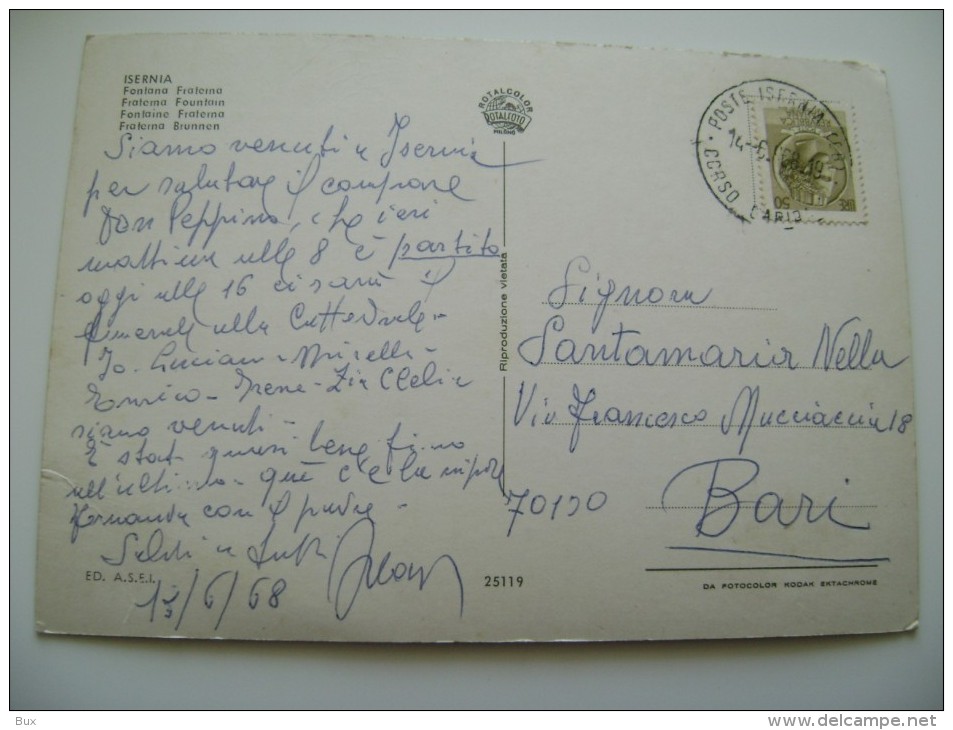 ISERNIA
Fontana Fraterna
Fraterna Fountain
Fontaine Fraterna
Fraterna Brunnen
ROTALCOLOR
ROTALFOTO
MILANO
POSTE ISERNIA
CORSO
50
Siamo venuti a Isernia
per salutare il compare
Don Peppino, che ieri
mattina alle 8 è partito
oggi alle 16 ci sarà il
funerale alla Cattedrale -
Io - Luciano - Mirella -
Enrico - Irene - Zia Clelia
siamo venuti -
È stato quasi bene fino
all'ultimo - qui c'è la nipote
Fernanda con il padre -
Saluti a tutti
/6/68
ED. A.S.E.I.
25119
Riproduzione vietata
Signora
Santamaria Nella
Via Francesco Muciaccia 18
Bari
DA FOTOCOLOR KODAK EKTACHROME
Bux
www.delcampe.net